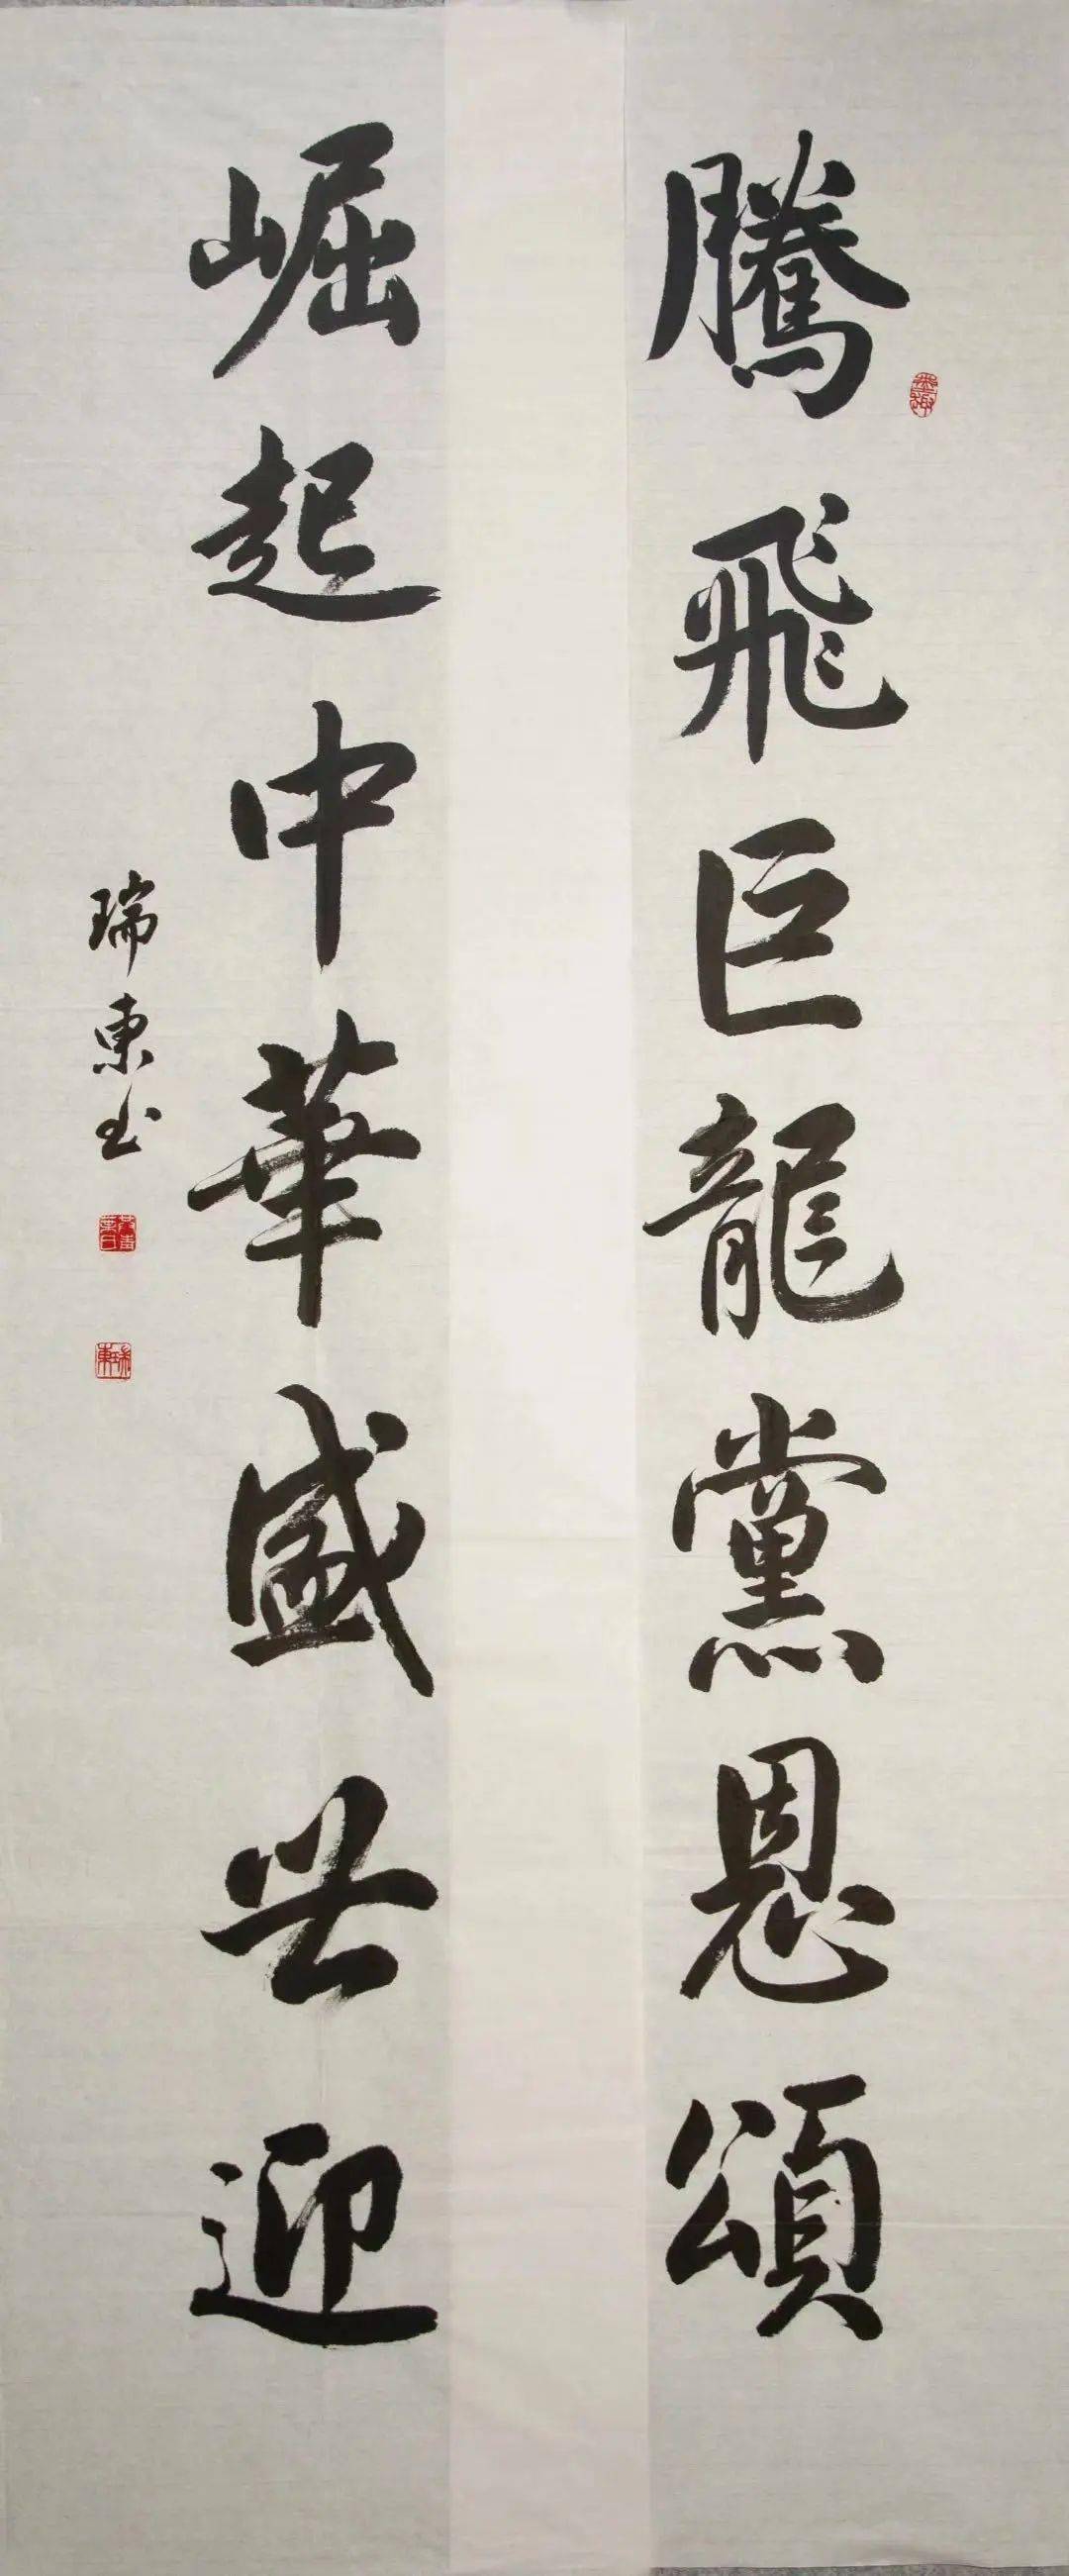 騰飛巨龍黨恩頌
崛起中華盛世迎
瑞東书